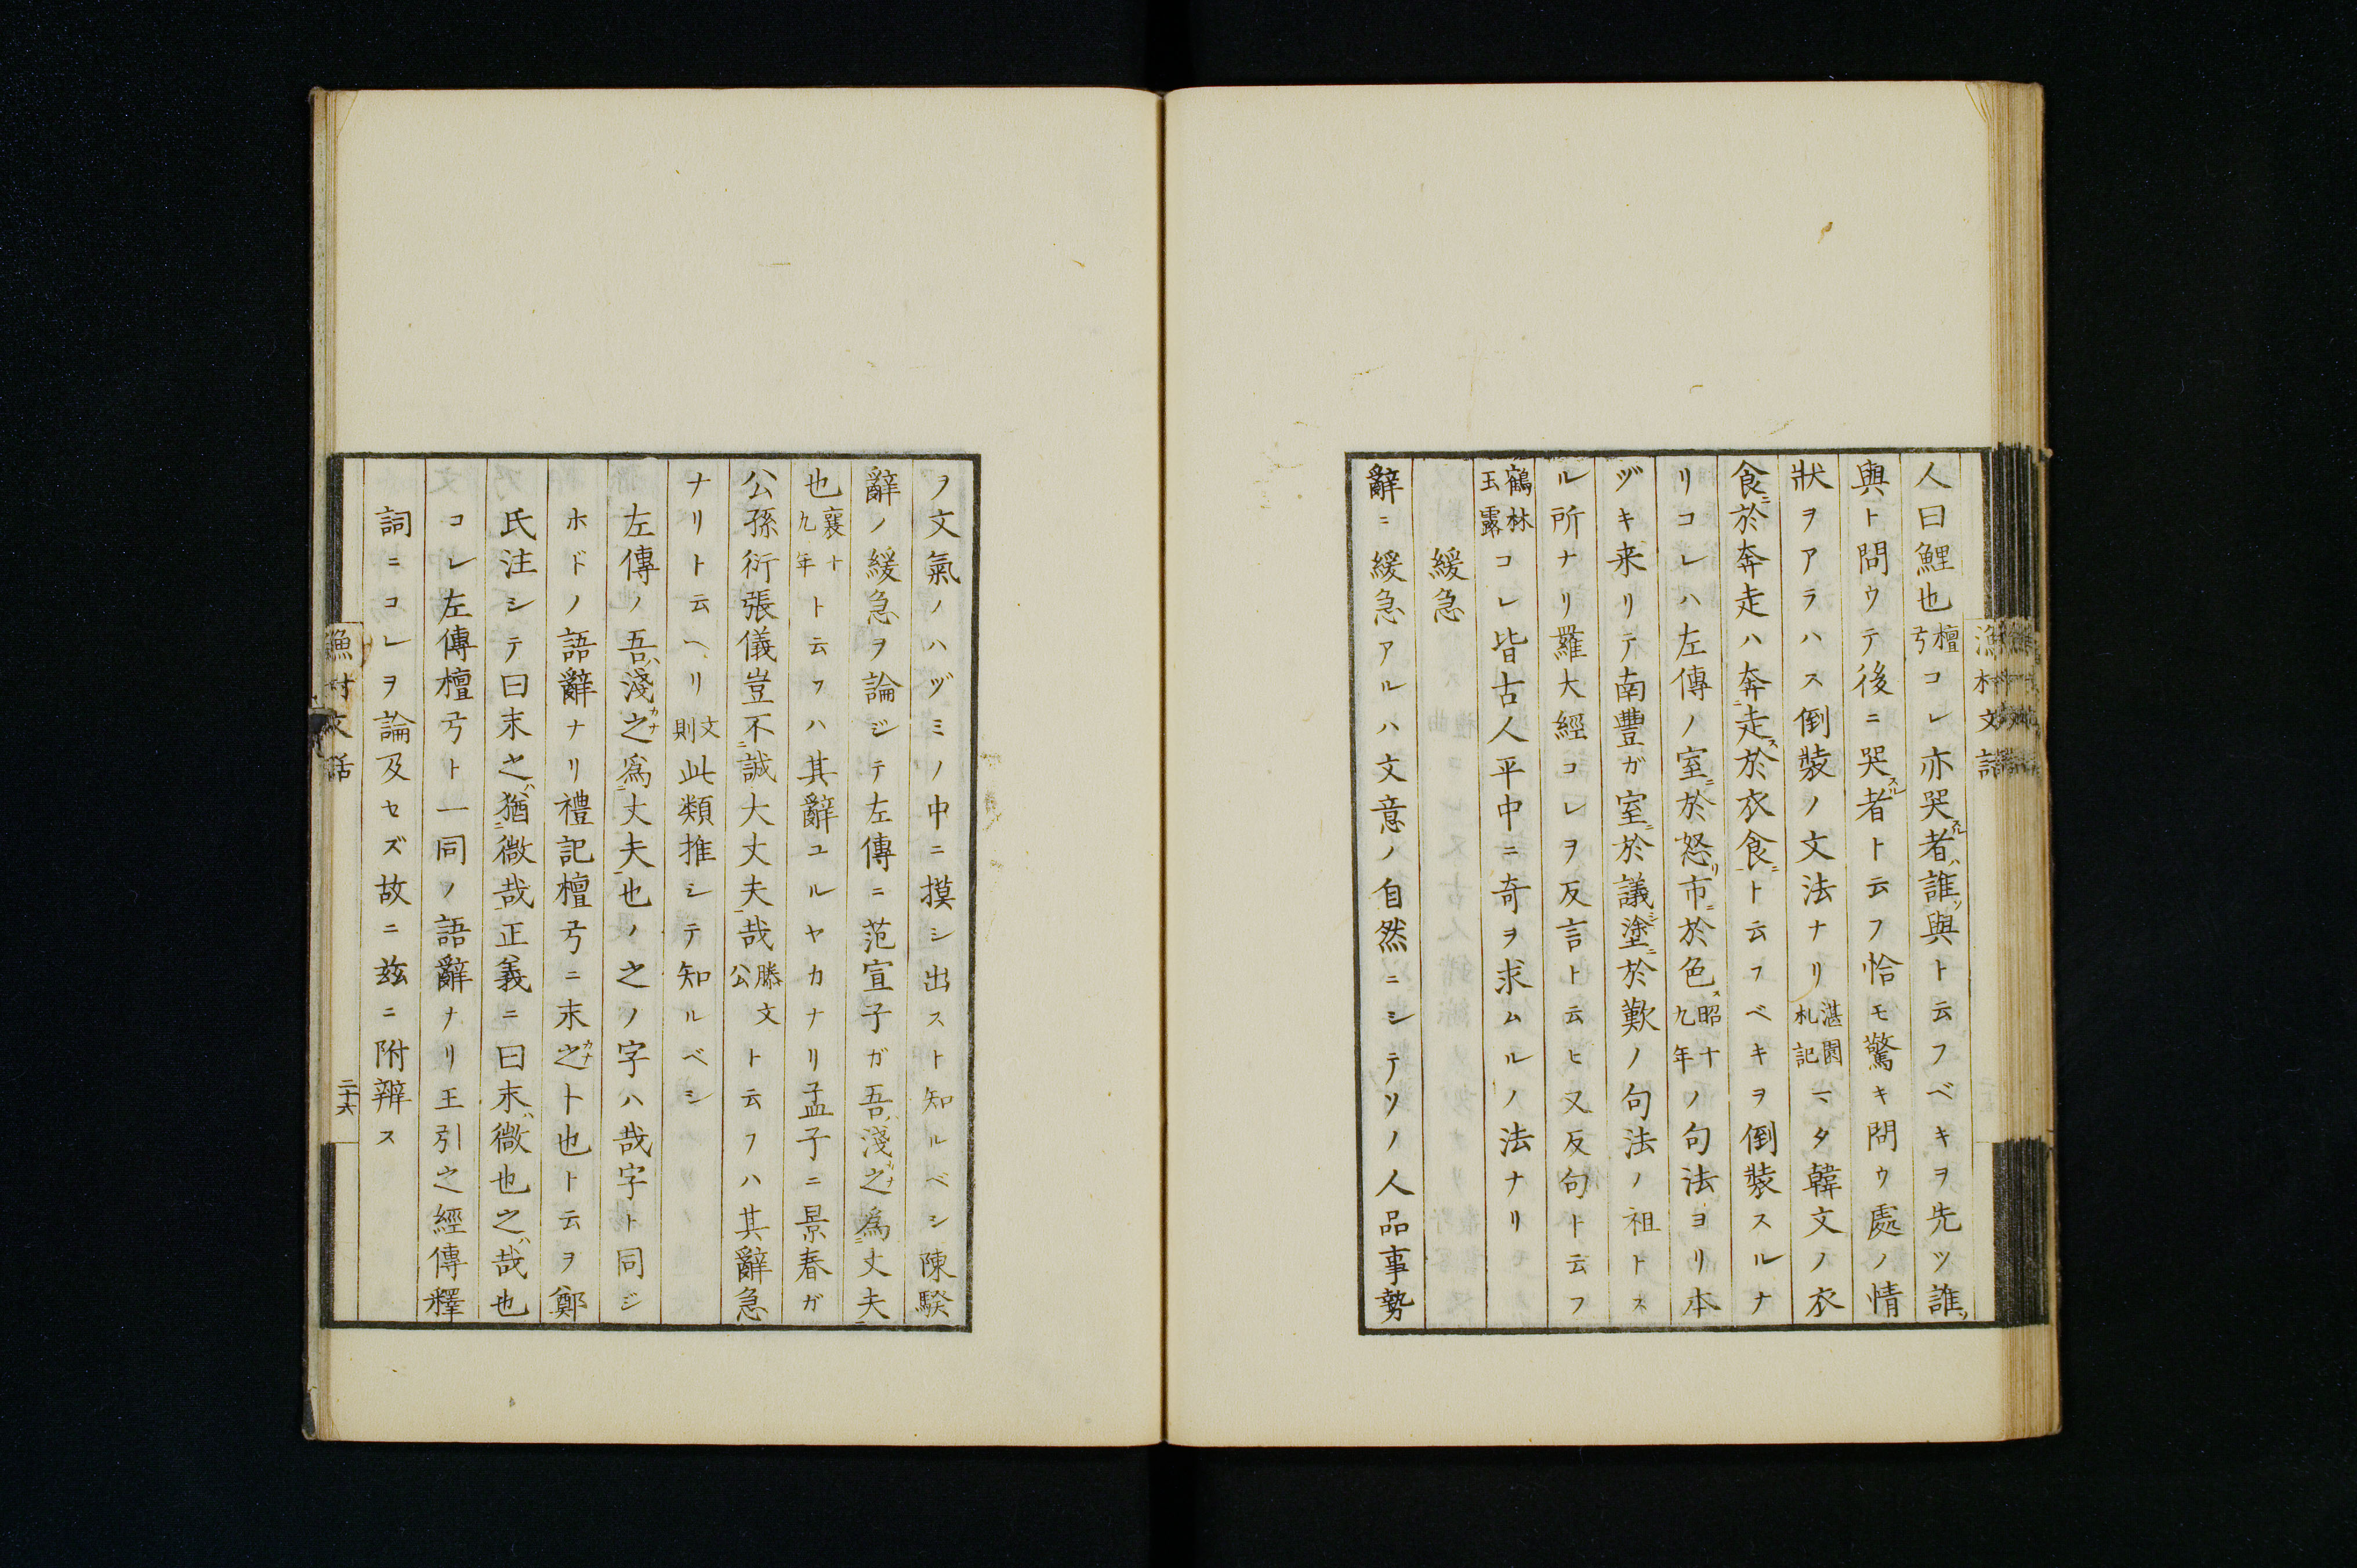 人曰鯉也檀弓コレ亦哭者誰與ト云フベキヲ先ツ誰
與ト問ウテ後ニ哭者ト云フ恰モ驚キ問ウ處ノ情
狀ヲアラハス倒裝ノ文法ナリ湛園札記マタ韓文ノ衣
食於奔走ハ奔走於衣食ト云フベキヲ倒裝スルナ
リコレハ左傳ノ室於怒市於色昭十九年ノ句法ヨリ本
ヅキ来リテ南豐ガ室於議塗於歎ノ句法ノ祖トス
ル所ナリ羅大經コレヲ反言ト云ヒ又反句ト云フ
鶴林玉露コレ皆古人平中ニ奇ヲ求ムルノ法ナリ
緩急
辭ニ緩急アルハ文意ノ自然ニシテソノ人品事勢
ノ文氣ノハヅミノ中ニ摸シ出スト知ルベシ陳騤
辭ノ緩急ヲ論ジテ左傳ニ范宣子ガ吾淺之爲丈夫
也襄十九年ト云フハ其辭ユルヤカナリ孟子ニ景春ガ
公孫衍張儀豈不誠大丈夫哉滕文公ト云フハ其辭急
ナリト云ヘリ文則此類推シテ知ルベシ
左傳ノ吾淺之爲丈夫也ノ之ノ字ハ哉字ト同ジ
ホドノ語辭ナリ禮記檀弓ニ末之卜也ト云ヲ鄭
氏注シテ曰末之猶微哉正義ニ曰末微也之哉也
コレ左傳檀弓ト一同ノ語辭ナリ王引之經傳釋
詞ニコレヲ論及セズ故ニ茲ニ附辨ス
漁村文話
二十六